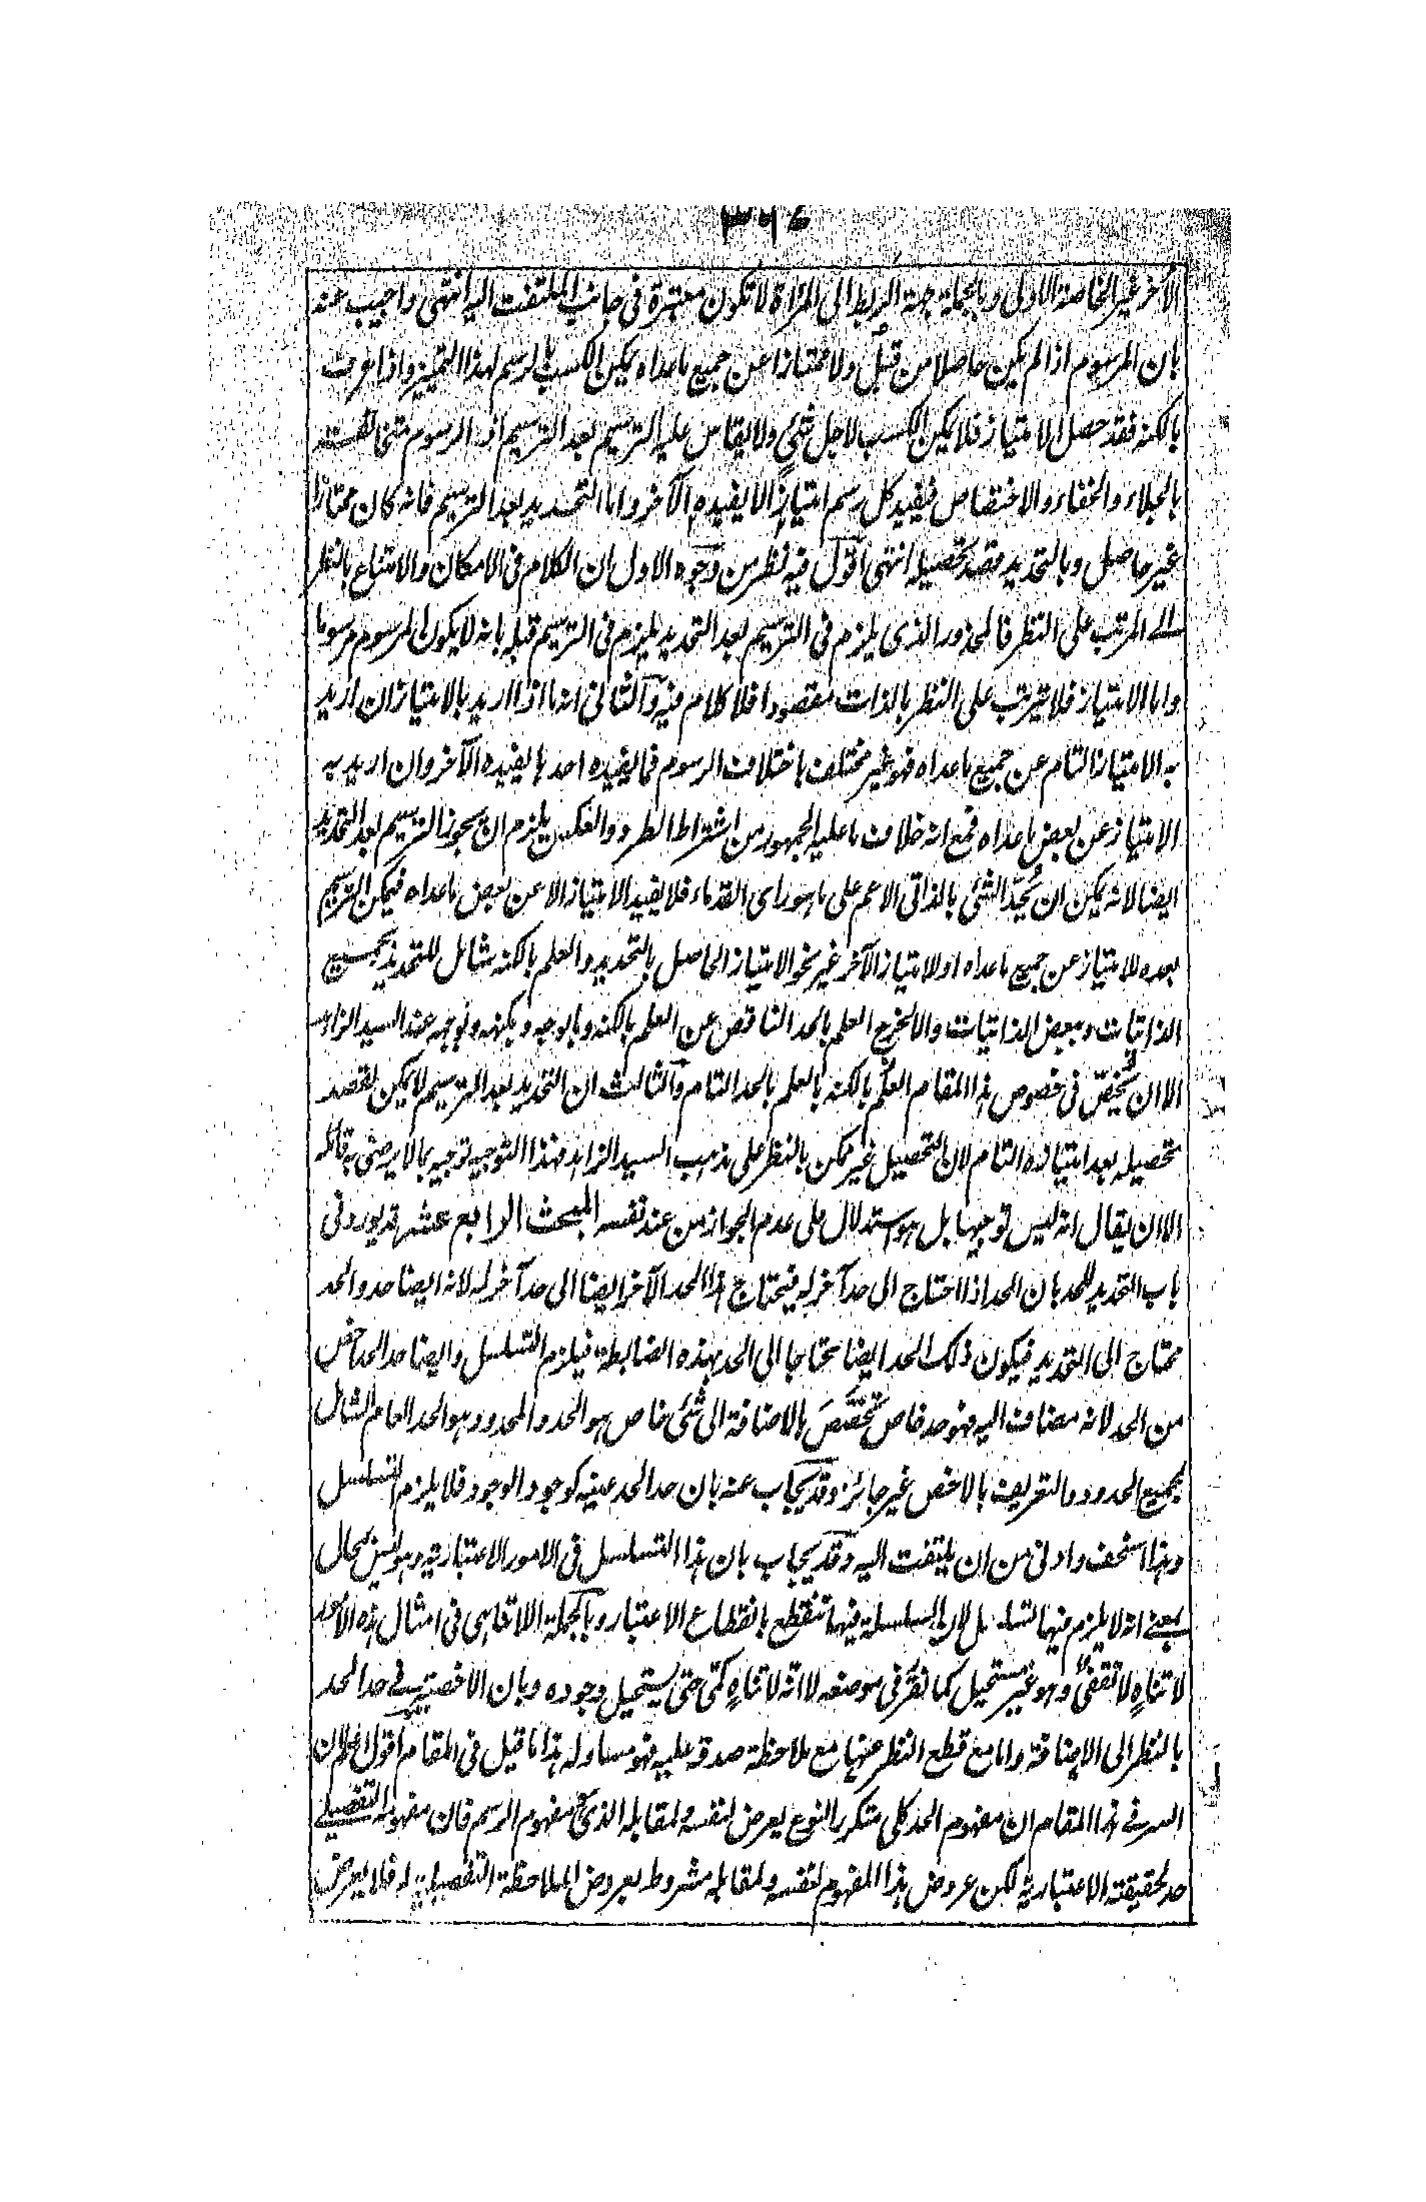 الآخر غير الخاصة الاولى وبالجملة جهة الربط الى المرآة لا تكون معتبرة فى جانب الملتفت اليه انتهى واجيب عنه
بان المرسوم اذا لم يكن حاصلا من قبل ولا ممتازا عن جميع ما عداه يمكن الكسب بالرسم لهذا التميز واذا عرف
بالكنه فقد حصل الامتياز فلا يمكن الكسب لاجل شئ ولا يقاس عليه الترسيم بعد الترسيم اذ الرسوم متخالفة
بالجلاء والخفاء والاختصاص فيفيد كل رسم امتيازا لا يفيده الآخر واما التحديد بعد الترسيم فانه كان ممتازا
غير حاصل وبالتحديد قصد تحصيله انتهى اقول فيه نظر من وجوه الاول ان الكلام فى الامكان والامتناع بالنظر
الے المرتب على النظر فالمحذور الذى يلزم فى الترسيم بعد التحديد يلزم فى الترسيم قبله بانه لا يكون المرسوم مرسوما
واما الامتياز فلا يترتب على النظر بالذات مقصودا فلا كلام فيه والثانى انه ما اذا اريد بالامتياز ان اريد
به الامتياز التام عن جميع ما عداه فهو غير مختلف باختلاف الرسوم فما يفيده احدها يفيده الآخر وان اريد به
الامتياز عن بعض ما عداه فمع انه خلاف ما عليه الجمهور من اشتراط الطرد والعكس يلزم ان يجوز الترسيم بعد التحديد
ايضا لانه يمكن ان يُحدّ الشئ بالذاتى الاعم على ما هو راى القدماء فلا يفيد الامتياز الا عن بعض ما عداه فيمكن الترسيم
بعده للامتياز عن جميع ما عداه او لامتياز الآخر غير نحو الامتياز الحاصل بالتحديد والعلم بالكنه شامل للتحديد بجميع
الذاتيات وببعض الذاتيات والا لخرج العلم بالحد الناقص عن العلم بالكنه وبالوجه وبكنهه وبوجهه عند السيد الزاهد
الا ان يُخصّ فى خصوص هذا المقام العلم بالكنه بالعلم بالحد التام والثالث ان التحديد بعد الترسيم لا يمكن لقصد
تحصيله بعد امتيازه التام لان التحصيل غير ممكن بالنظر على مذهب السيد الزاهد فهذا التوجيه توجيه بما لا يرضى به قائله
الا ان يقال انه ليس توجيها بل هو استدلال على عدم الجواز من عند نفسه المبحث الرابع عشر قد يورد فى
باب التحديد للحد بان الحد اذا احتاج الى حد آخر له فيحتاج هذا الحد الآخر ايضا الى حد آخر له لانه ايضا حد والحد
محتاج الى التحديد فيكون ذلك الحد ايضا محتاجا الى الحد بهذه الضابطة فيلزم التسلسل وايضا حد الحد اخص
من الحد لانه مضاف اليه فهو حد خاص تخصّصَ بالاضافة الى شئ خاص هو الحد والمحدود هو الحد العام الشامل
لجميع الحدود والتعريف بالاخص غير جائز وقد يجاب عنه بان حد الحد عينه كوجود الوجود فلا يلزم التسلسل
وهذا اسخف وادنى من ان يلتفت اليه وقد يجاب بان هذا التسلسل فى الامور الاعتبارية وهو ليس بمحال
يعنے انه لا يلزم فيها التسلسل لان السلسلة فيها تنقطع بانقطاع الاعتبار وبالجملة اللاتناهى فى امثال هذه الامور
لا تناهٍ لا تقفىّ وهو غير مستحيل كما تقرر فى موضعه لا انّه لا تناهٍ كمّى حتى يستحيل وجوده وبان الاخصية فے حد الحد
بالنظر الى الاضافة واما مع قطع النظر عنها مع ملاحظة صدقه عليه فهو مساو له هذا ما قيل فى المقام اقول اعلم ان
السر فے هذا المقام ان مفهوم الحد كلى متكرر النوع يعرض لنفسه ولمقابله الذى هو مفهوم الرسم فان مفهومه التفصيلے
حد لحقيقته الاعتبارية لكن عروض هذا المفهوم لنفسه ولمقابله مشروط بعروض الملاحظة التفصيلية له فلا يعرض